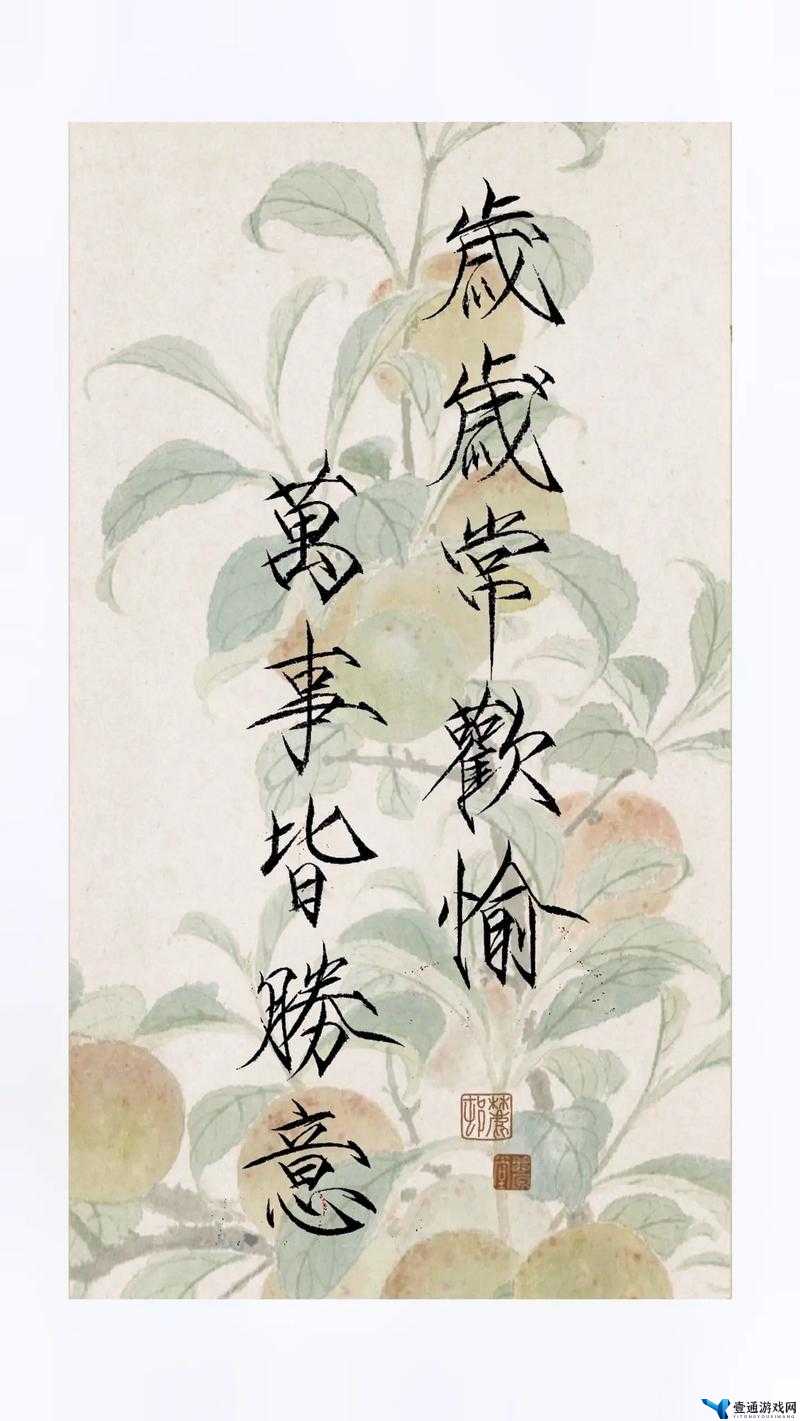 歲歲常歡愉
萬事皆勝意
壹通游戏网
YITONGYOUXIWANG